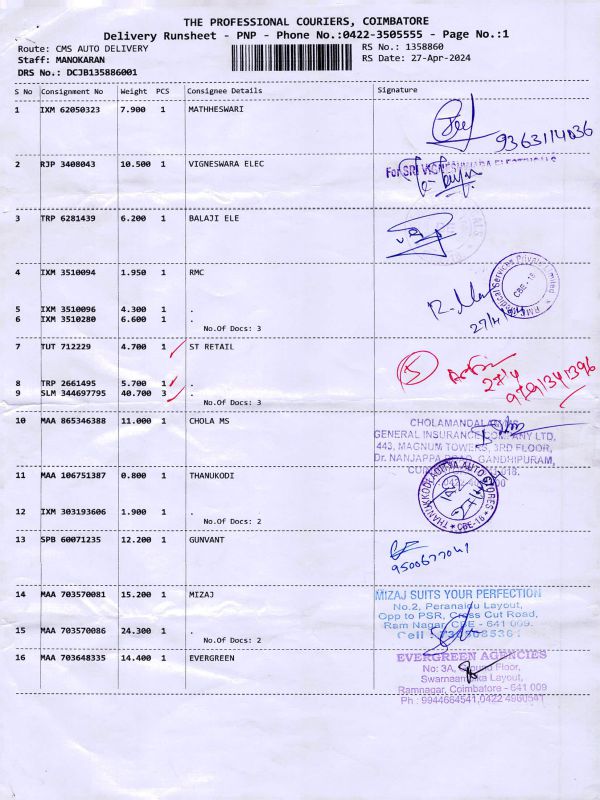 THE PROFESSIONAL COURIERS, COIMBATORE
Delivery Runsheet - PNP - Phone No.:0422-3505555 - Page No.:1
Route: CMS AUTO DELIVERY RS No.: 1358860
Staff: MANOKARAN RS Date: 27-Apr-2024
DRS No.: DCJB135886001
S No Consignment No Weight PCS Consignee Details Signature
1 IXM 62050323 7.900 1 MATHHESWARI
9363114036
2 RJP 3408043 10.500 1 VIGNESWARA ELEC
For SRI VIGNESHWARA ELECTRICALS
3 TRP 6281439 6.200 1 BALAJI ELE
4 IXM 3510094 1.950 1 RMC
5 IXM 3510096 4.300 1 .
6 IXM 3510280 6.600 1 .
27/4/24
No.Of Docs: 3
7 TUT 712229 4.700 1 ST RETAIL
5
27/4
8 TRP 2661495 5.700 1 .
9 SLM 344697795 40.700 3 .
9791341396
No.Of Docs: 3
10 MAA 865346388 11.000 1 CHOLA MS
CHOLAMANDALAM MS
GENERAL INSURANCE COMPANY LTD,
443, MAGNUM TOWERS, 3RD FLOOR,
Dr. NANJAPPA ROAD, GANDHIPURAM,
11 MAA 106751387 0.800 1 THANUKODI
THANUKKODI AUTO STORES * CBE-18 *
12 IXM 303193606 1.900 1 .
No.Of Docs: 2
13 SPB 60071235 12.200 1 GUNVANT
9500677041
14 MAA 703570081 15.200 1 MIZAJ
MIZAJ SUITS YOUR PERFECTION
No.2, Peranaidu Layout,
Opp to PSR, Cross Cut Road,
Ram Nagar, CBE - 641 009.
Cell :
15 MAA 703570086 24.300 1 .
No.Of Docs: 2
16 MAA 703648335 14.400 1 EVERGREEN
EVERGREEN AGENCIES
No: 3A, Ground Floor,
Swarnaambika Layout,
Ramnagar, Coimbatore - 641 009
Ph : 9944664541,0422 4980541